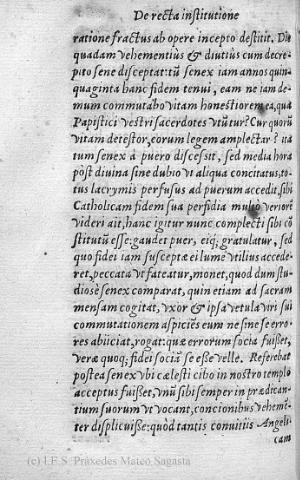 De recta institutione
ratione fractus ab opere incepto destitit. Die
quadam vehementius & diutius cum decre-
pito sene disceptat: tũ senex iam annos quin-
quaginta hanc fidem tenui, eam ne iam de-
mum commutabo vitam honestiorem ea, qua
Papistici vestri sacerdotes vtũtur? Cur quorũ
vitam detestor, eorum legem amplectar? ita
tum senex à puero discessit, sed media hora
pòst divina sine dubio vi aliqua concitatus, to-
tus lacrymis perfusus ad puerum accedit, sibi
Catholicam fidem sua perfidia multò veriorẽ
videri ait, hanc igitur nunc complecti sibi cõ
stitutũ esse: gaudet puer, eiq; gratulatur, sed
quo fidei iam susceptæ ei lumẽ vtilius accede-
ret, peccata vt fateatur, monet, quod dum stu-
diosè senex comparat, quin etiam ad sacram
mensam cogitat, vxor & ipsa vetula viri sui
commutationem aspiciẽs eum ne sine se erro-
res abiiciat, rogat: quæ errorum socia fuisset,
veræ quoq; fidei sociã se esse velle. Referebat
postea senex vbi cælesti cibo in nostro templo
acceptus fuisset, vnũ sibi semper in prædican-
tium suorum vt vocant, concionibus vehemẽ-
ter displicuisse: quòd tantis convitiis Angeli-
cam
(c) I.E.S. Práxedes Mateo Sagasta